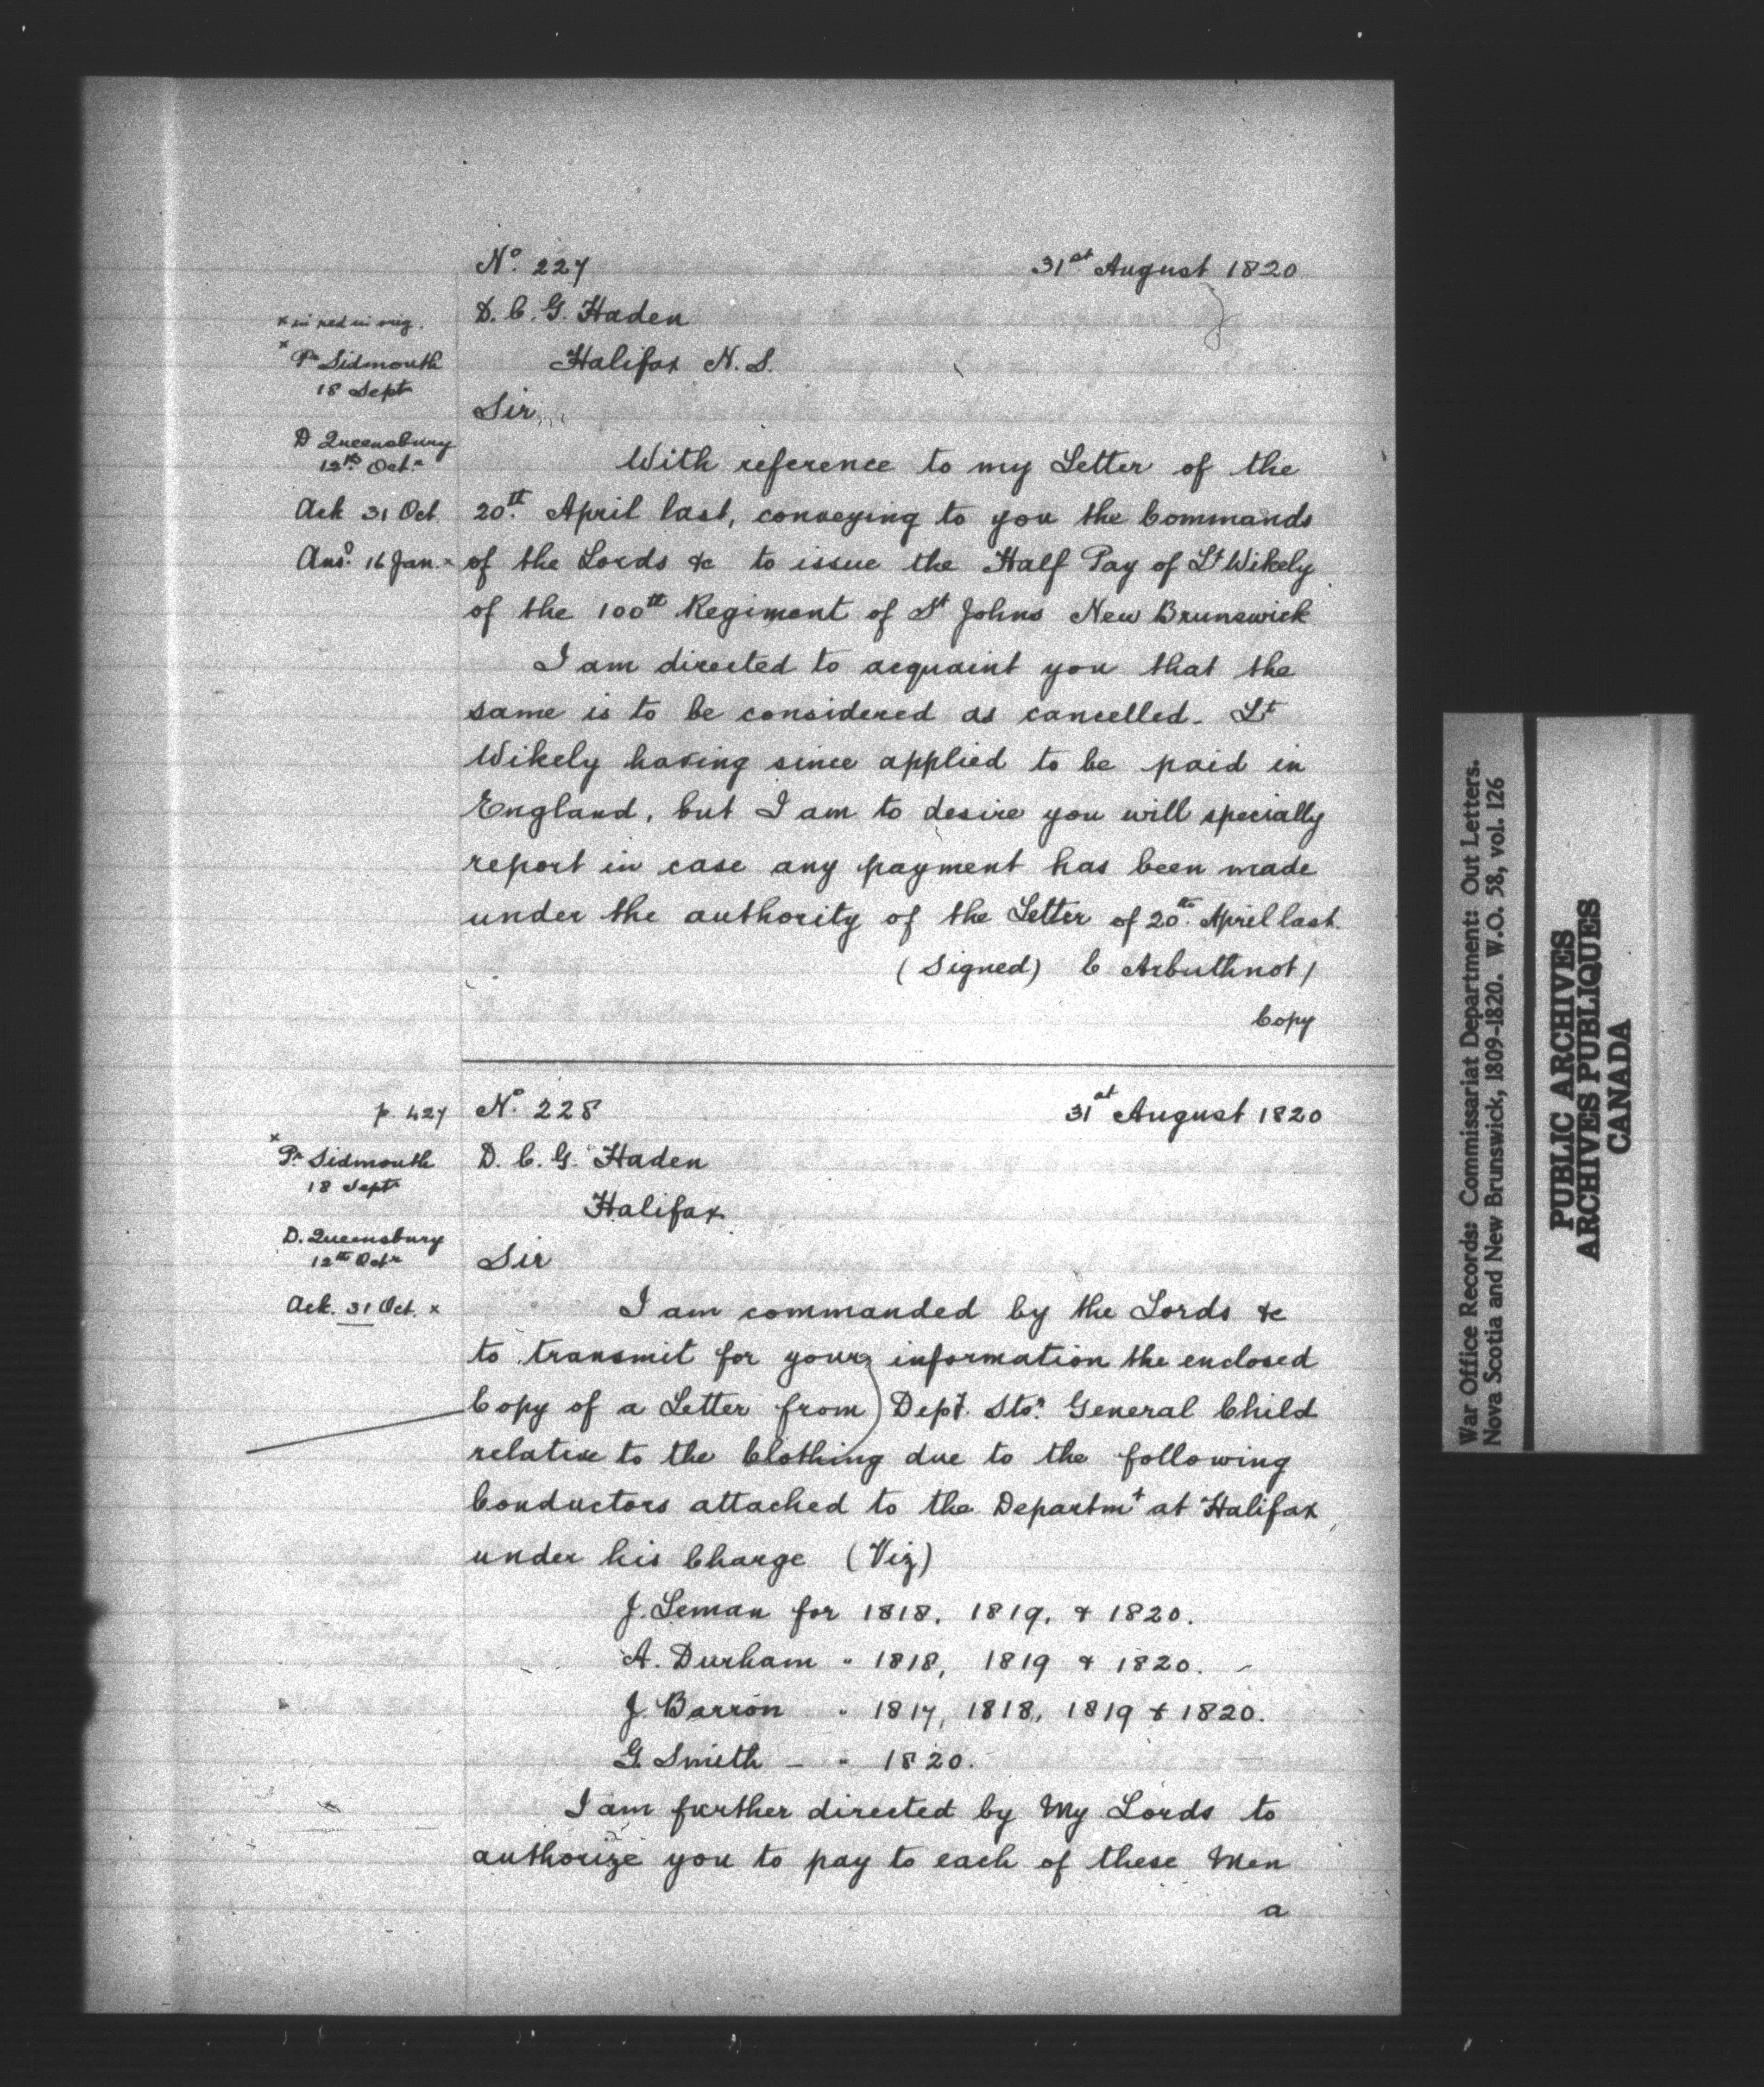 No. 227 31st August 1820
D. C. G. Haden
x in red in orig.
Halifax N.S.
x Pr Sidmouth
18 Sept
Sir,
D Queensbury
12th Octr
With reference to my Letter of the
Ack 31 Oct
20th. April last, conveying to you the Commands
Ansd. 16 Jan. x
of the Lords &c to issue the Half Pay of Lt Wikely
of the 100th Regiment of St Johns New Brunswick
I am directed to acquaint you that the
same is to be considered as cancelled. Lt
Wikely having since applied to be paid in
England, but I am to desire you will specially
report in case any payment has been made
under the authority of the Letter of 20th. April last.
(Signed) C Arbuthnot /
Copy
p. 427
No. 228 31st August 1820
x Pr Sidmouth
18 Sept
D. C. G. Haden
Halifax
D. Queensbury
12th Octr
Sir
Ack. 31 Oct. x
I am commanded by the Lords &c
to transmit for your information the enclosed
Copy of a Letter from Depy. Stor. General Child
relative to the Clothing due to the following
Conductors attached to the Departmt at Halifax,
under his Charge (Viz)
J. Leman for 1818, 1819, & 1820.
A. Durham " 1818, 1819 & 1820.
J. Barron " 1817, 1818, 1819 & 1820.
G. Smith - " 1820.
I am further directed by My Lords to
authorize you to pay to each of these Men
a
War Office Records: Commissariat Department: Out Letters.
Nova Scotia and New Brunswick, 1809-1820. W.O. 58, vol. 126
PUBLIC ARCHIVES
ARCHIVES PUBLIQUES
CANADA